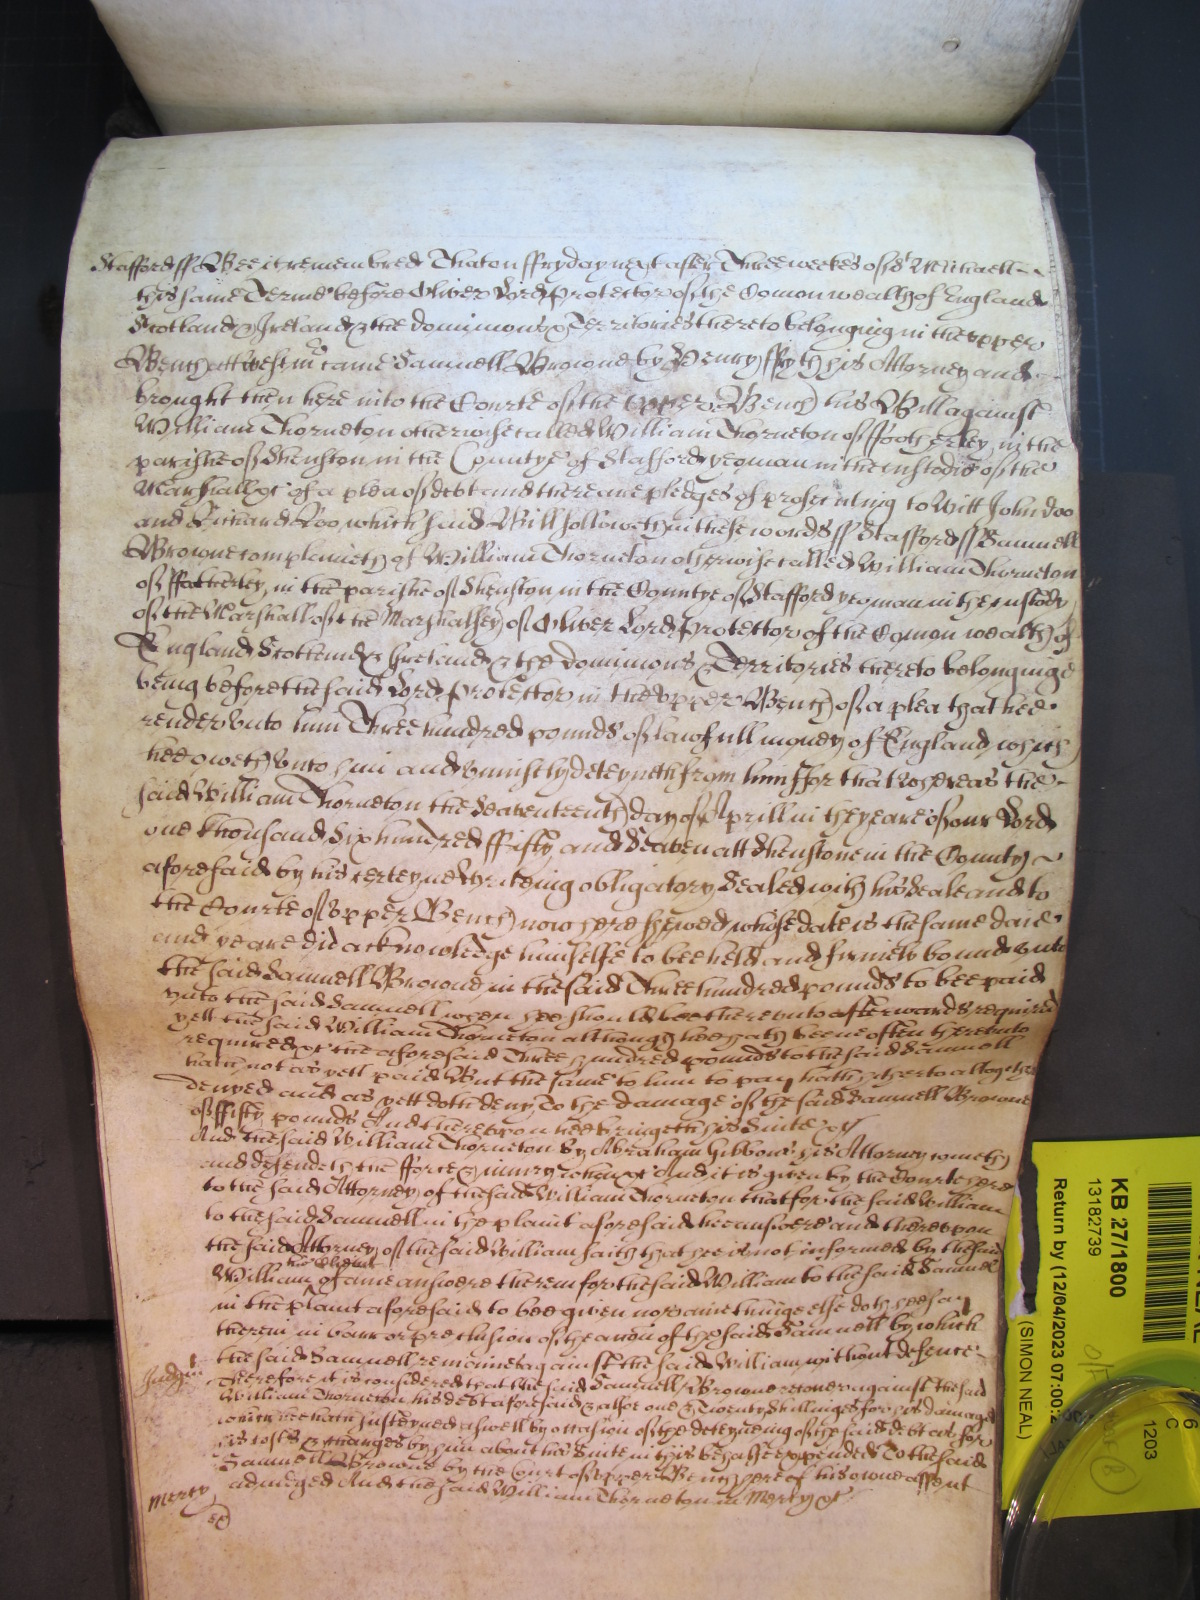 Stafford ss Bee it remembred That on ffryday next after Three weekes of St Michaell
this same Terme before Oliver Lord Protector of the Comon wealth of England
Scotland & Ireland & the dominions & Territories thereto belonging in the upper
Bench att Westmr came Samuell Browne by Henry ffryth his Attorney and
brought then here into the Courte of the upper Bench his Bill against
William Thorneton otherwise called William Thorneton of ffootherley in the
parishe of Shenston in the Countye of Stafford yeoman in the custodie of the
Marshall &c of a plea of debt and there are pledges of prosecuting to witt John doo
and Richard Roo which said Bill followeth in these words ss Stafford ss Samuell
Browne complaineth of William Thorneton otherwise called William Thorneton
of in the parishe of Shenston in the Countye of Stafford yeoman in the custody
of the Marshall of the Marshalsey of Oliver Lord Protector of the Comon wealth of
England Scotland & Ireland & the dominions & Territories thereto belonginge
being before the said Lord Protector in the upper Bench of a plea that hee
render unto him Three hundred pounds of lawfull money of England which
hee oweth unto him and uniustly deteyneth from him ffor that whereas the
said William Thorneton the Seaventeenth day of Aprill in the yeare of our Lord
one thousand Six hundred ffifty and Seaven att Shenstone in the County
aforesaid by his certeyne writeing obligatory Sealed with his Seale and to
the Courte of upper Bench now here shewed whose date is the same daie
and yeare did acknowledge himselfe to bee held and firmely bound unto
the said Samuell Browne in the said Three hundred pounds to bee paid
unto the said Samuell when hee should bee thereunto afterwards required
yett the said William Thorneton although hee hath beene often thereunto
required &c the aforesaid Three hundred pounds to the said Samuell
hath not as yett paid But the same to him to pay hath hitherto altogether
denyed and as yett doth deny To the damage of the said Samuell Browne
of ffifty pounds And thereupon hee bringeth his Suite &c
And the said William Thorneton by Abraham Gibbons his Attorney cometh
and defendeth the fforce & iniury when &c And it is given by the Courte here
to the said Attorney of the said William Thorneton that for the said William
to the said Samuell in the plaint aforesaid hee answere and thereupon
the said Attorney of the said William saith that hee is not informed by the said
William his Clyent of anie answere therein for the said William to the said Samuel
in the plaint aforesaid to bee given nor anie thinge else doth hee say
therein in barr or preclusion of the accion of the said Samuell by which
the said Samuell remaineth against the said William without defence
Judgmt Therefore it is considered that the said Samuell Browne recover against the said
William Thorneton his debt aforesaid & alsoe one & Twenty shillinges for his damages
which hee hath susteyned aswell by occasion of the deteyneing of the said debt as for
his costs & charges by him about his Suite in this behalfe expended To the said
Samuell Browne by the Court of upper Bench here of his owne assent
adiudged And the said William Thorneton in Mercy &c
Mercy
KB 27/1800
13182739
Return by (12/04/2023 07:00:
(SIMON NEAL)
C
1203